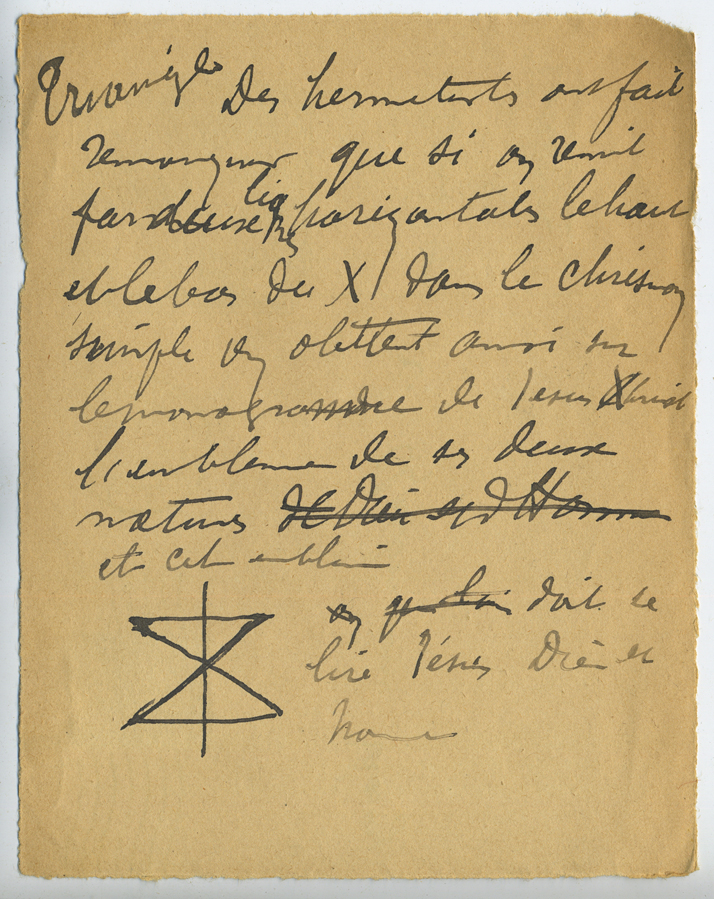 Triangle Des hermetistes ont fait
remarquer que si on réunit
par deux lignes horizontales le haut
et le bas du X dans le chrismon
simple on obtient ainsi sur
le monogramme de Jesus Christ
l'emblème de ses deux
natures de Dieu et d'Homme
et cet emblème
doit se
lire Jésus Dieu et
homme